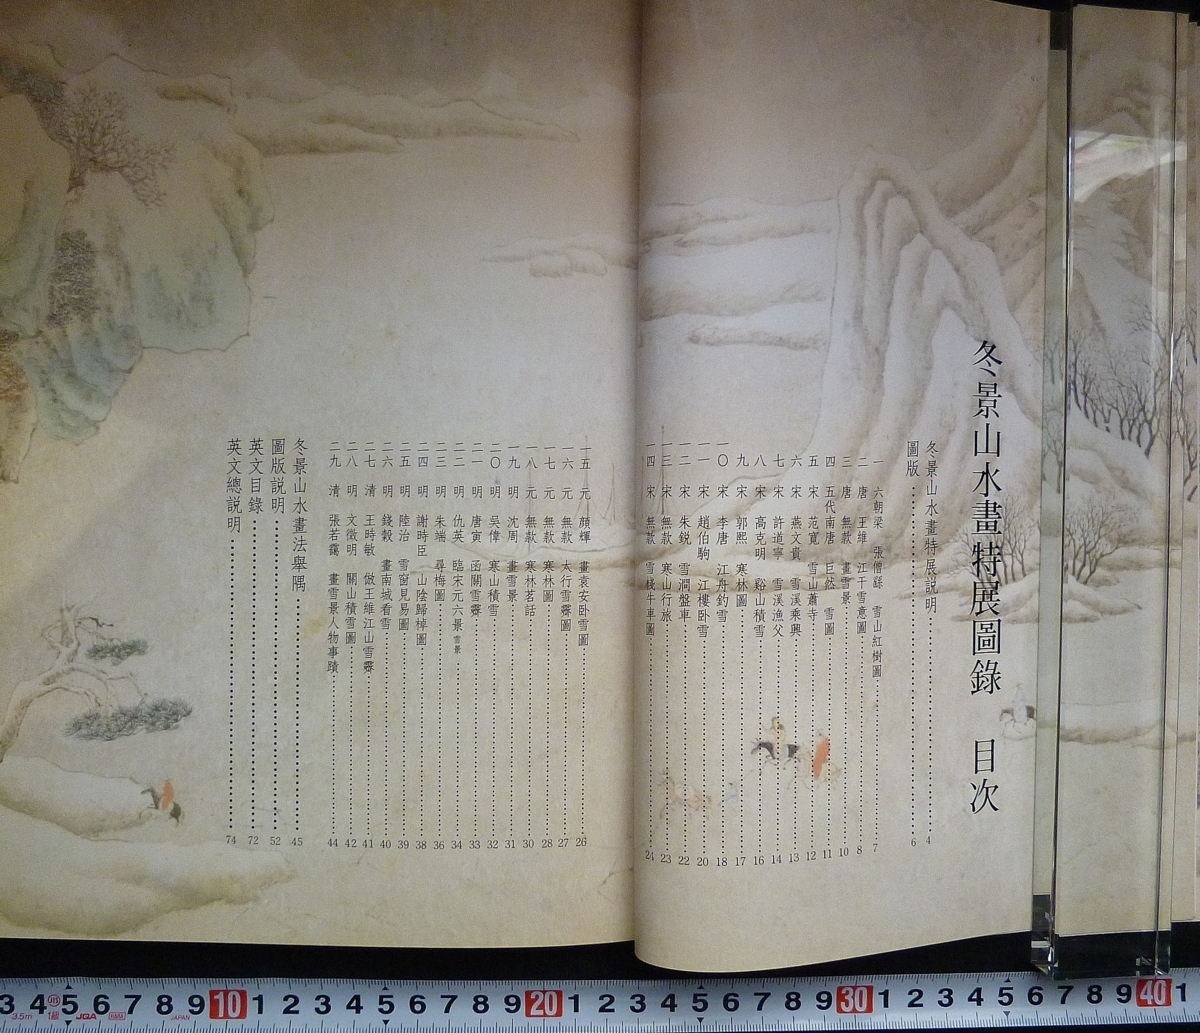 冬景山水畫特展圖錄 目次
冬景山水畫特展説明 4
圖版 6
一 六朝梁 張僧繇 雪山紅樹圖 7
二 唐 王維 江干雪意圖 8
三 唐 無款 畫雪景 10
四 五代南唐 巨然 雪圖 11
五 宋 范寬 雪山蕭寺 12
六 宋 燕文貴 雪溪乘興 13
七 宋 許道寧 雪溪漁父 14
八 宋 高克明 谿山積雪 16
九 宋 郭熙 寒林圖 17
一〇 宋 李唐 江舟釣雪 18
一一 宋 趙伯駒 江樓卧雪 20
一二 宋 朱鋭 雪澗盤車 22
一三 宋 無款 寒山行旅 23
一四 宋 無款 雪棧牛車圖 24
一五 元 顔輝 畫袁安卧雪圖 26
一六 元 無款 太行雪霽圖 27
一七 元 無款 寒林圖 28
一八 元 無款 寒林茗話 30
一九 明 沈周 畫雪景 31
二〇 明 吳偉 寒山積雪 32
二一 明 唐寅 函關雪霽 33
二二 明 仇英 臨宋元六景 雪景 34
二三 明 朱端 尋梅圖 36
二四 明 謝時臣 山陰歸棹圖 38
二五 明 陸治 雪窗見易圖 39
二六 明 錢穀 畫南城看雪 40
二七 清 王時敏 倣王維江山雪霽 41
二八 明 文徵明 關山積雪圖 42
二九 清 張若靄 畫雪景人物事蹟 44
冬景山水畫法舉隅 45
圖版説明 52
英文目錄 72
英文總説明 74
3 4 5 6 7 8 9 10 1 2 3 4 5 6 7 8 9 20 1 2 3 4 5 6 7 8 9 30 1 2 3 4 5 6 7 8 9 40 1
3.5m JIS 1級 JQA JAPAN